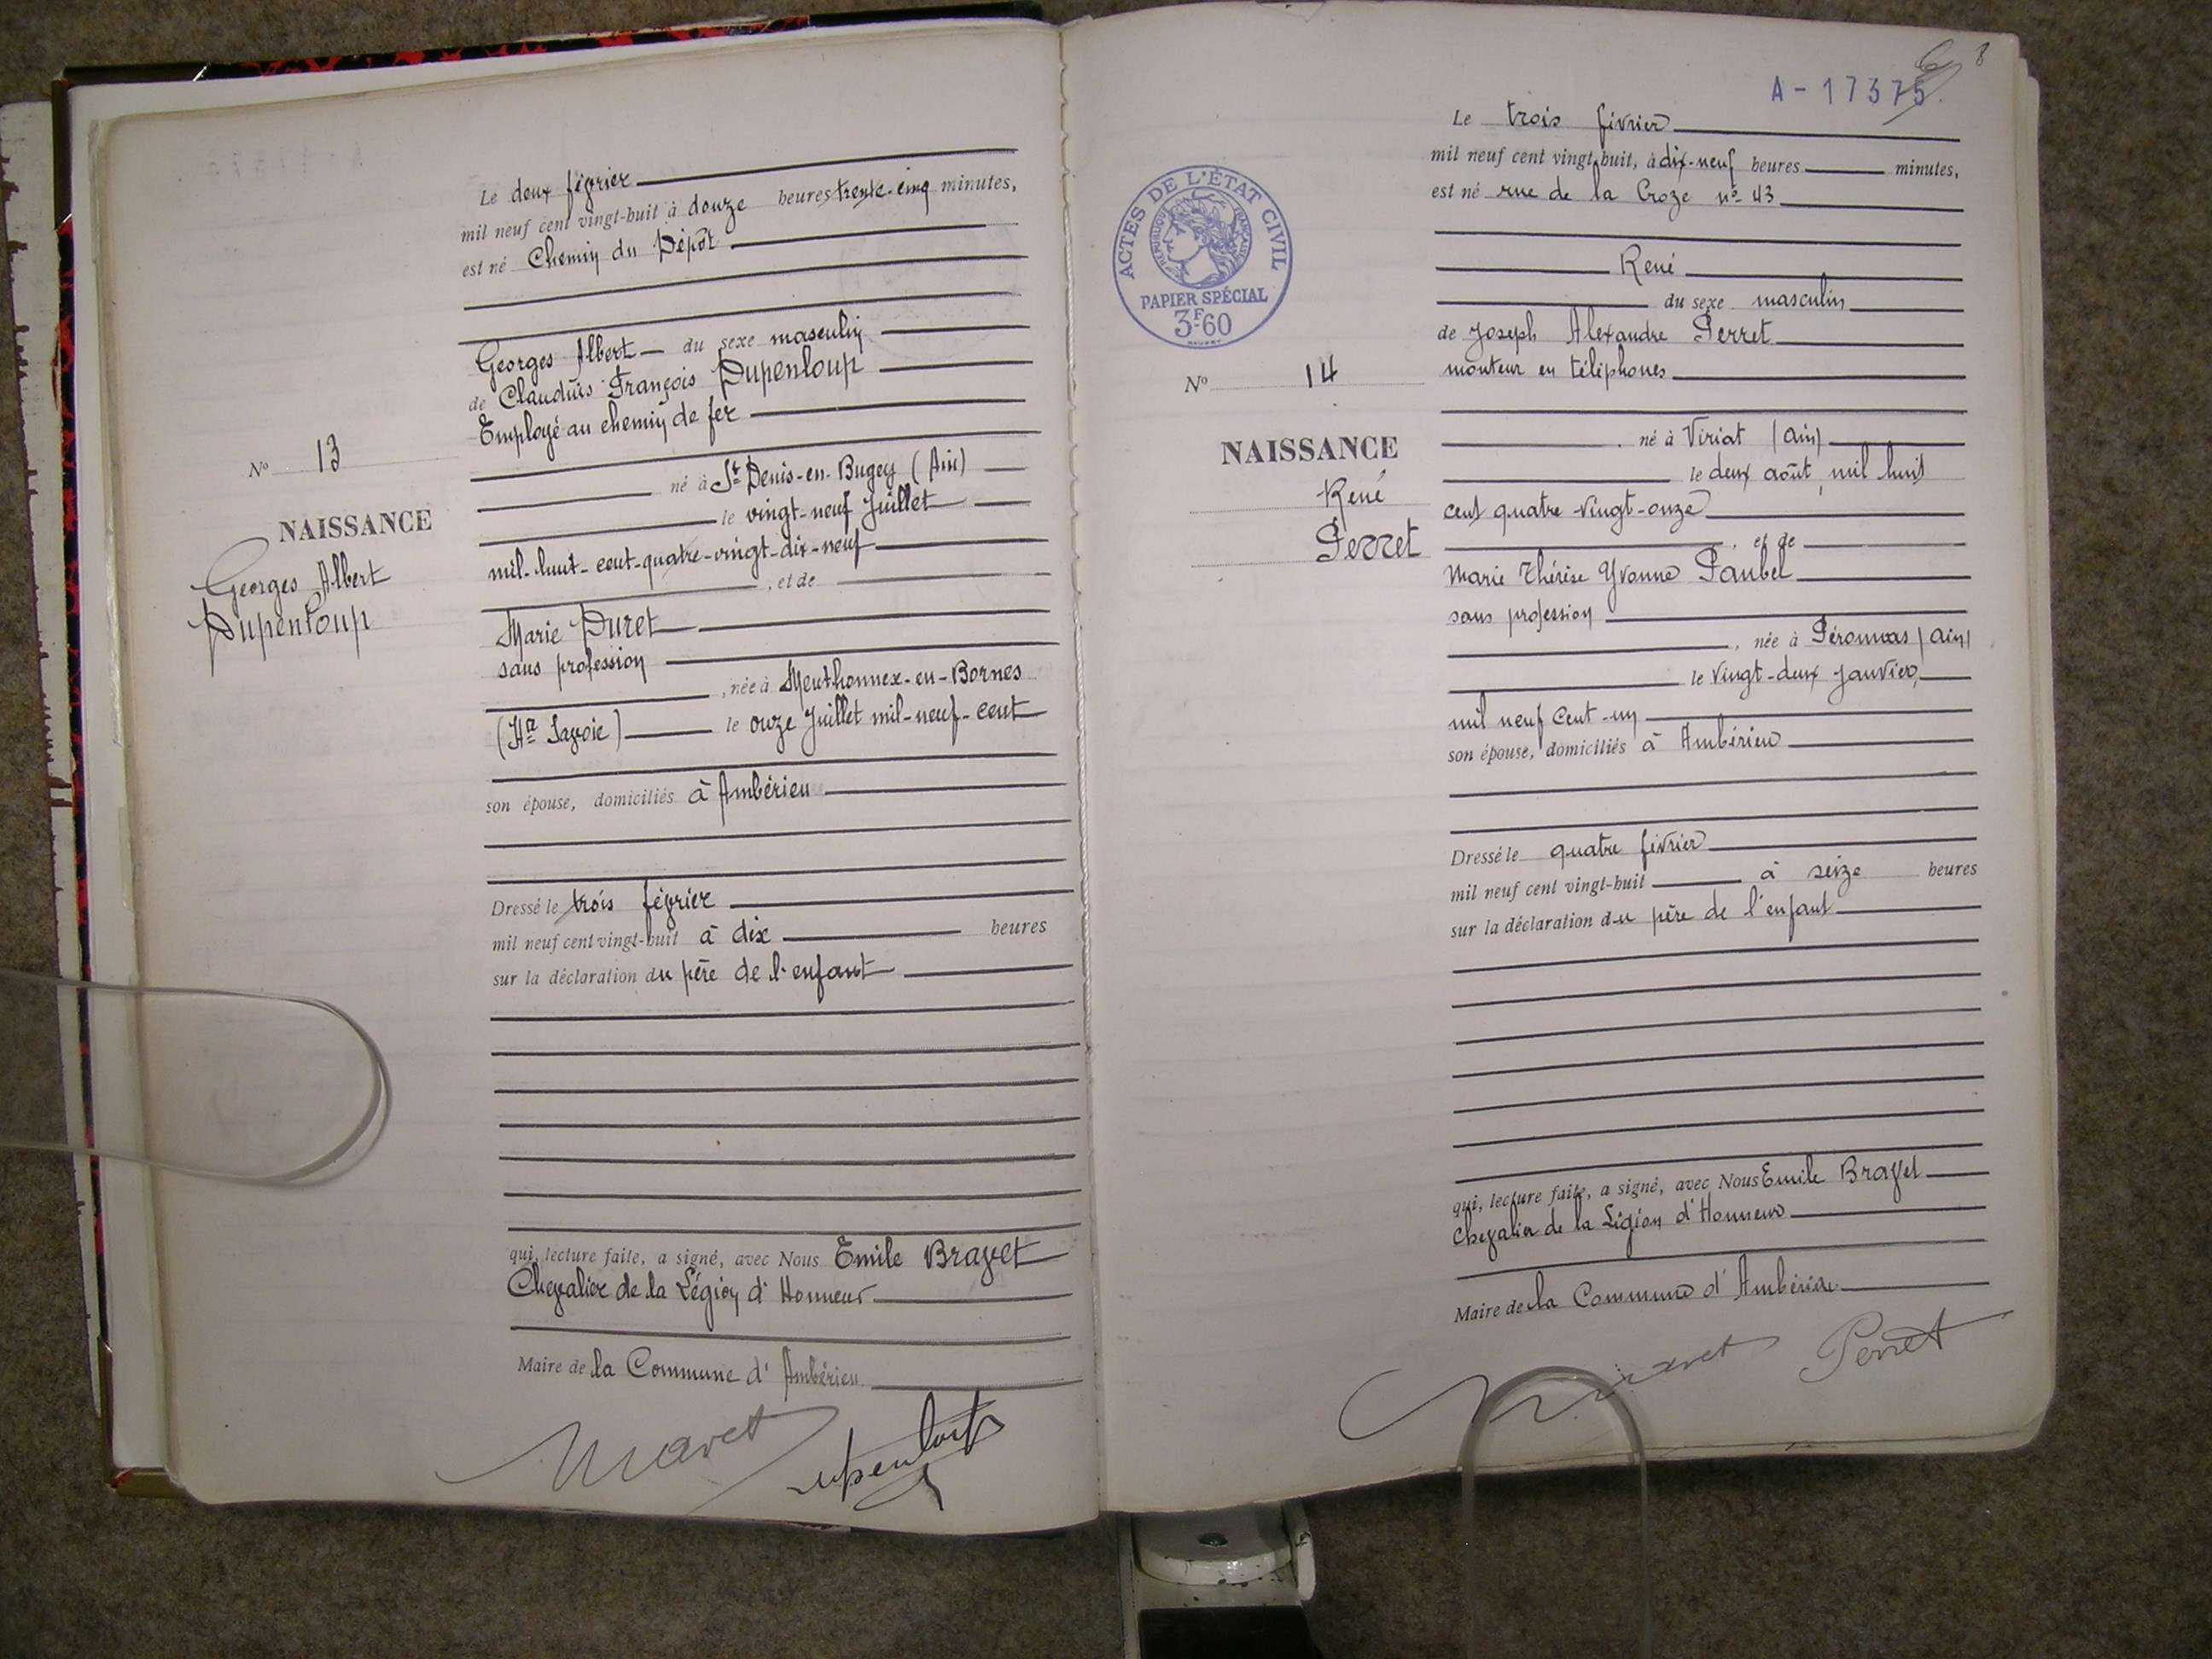 Le deux février
mil neuf cent vingt-huit à douze heures trente-cinq minutes,
est né Chemin du Dépôt
Georges Albert du sexe masculin
de Claudius François Dupenloup
Employé au chemin de fer
né à St Denis-en-Bugey (Ain)
le vingt-neuf Juillet
mil-huit-cent-quatre-vingt-dix-neuf
, et de
Marie Duret
sans profession
, née à Menthonnex-en-Bornes
(Hte Savoie) le onze Juillet mil-neuf-cent
son épouse, domiciliés à Ambérieu
Dressé le trois février
mil neuf cent vingt-huit à dix heures
sur la déclaration du père de l'enfant
qui, lecture faite, a signé, avec Nous Emile Bravet
Chevalier de la Légion d'Honneur
Maire de la Commune d'Ambérieu
No 13
NAISSANCE
Georges Albert
Dupenloup
8
A-17375
Le trois février
mil neuf cent vingt-huit, à dix-neuf heures minutes,
est né rue de la Croze no 43
René
du sexe masculin
de Joseph Alexandre Perret
monteur en téléphones
. né à Viriat (Ain)
le deux août mil huit
cent quatre-vingt-onze
, et de
Marie Thérèse Yvonne Paubel
sans profession
, née à Péronnas (Ain)
le vingt-deux janvier,
mil neuf cent-un
son épouse, domiciliés à Ambérieu
Dressé le quatre février
mil neuf cent vingt-huit à seize heures
sur la déclaration du père de l'enfant
qui, lecture faite, a signé, avec Nous Emile Bravet
Chevalier de la Légion d'Honneur
Maire de la Commune d'Ambérieu
Perret
ACTES DE L'ÉTAT CIVIL
RÉPUBLIQUE FRANÇAISE
PAPIER SPÉCIAL
3F60
No 14
NAISSANCE
René
Perret